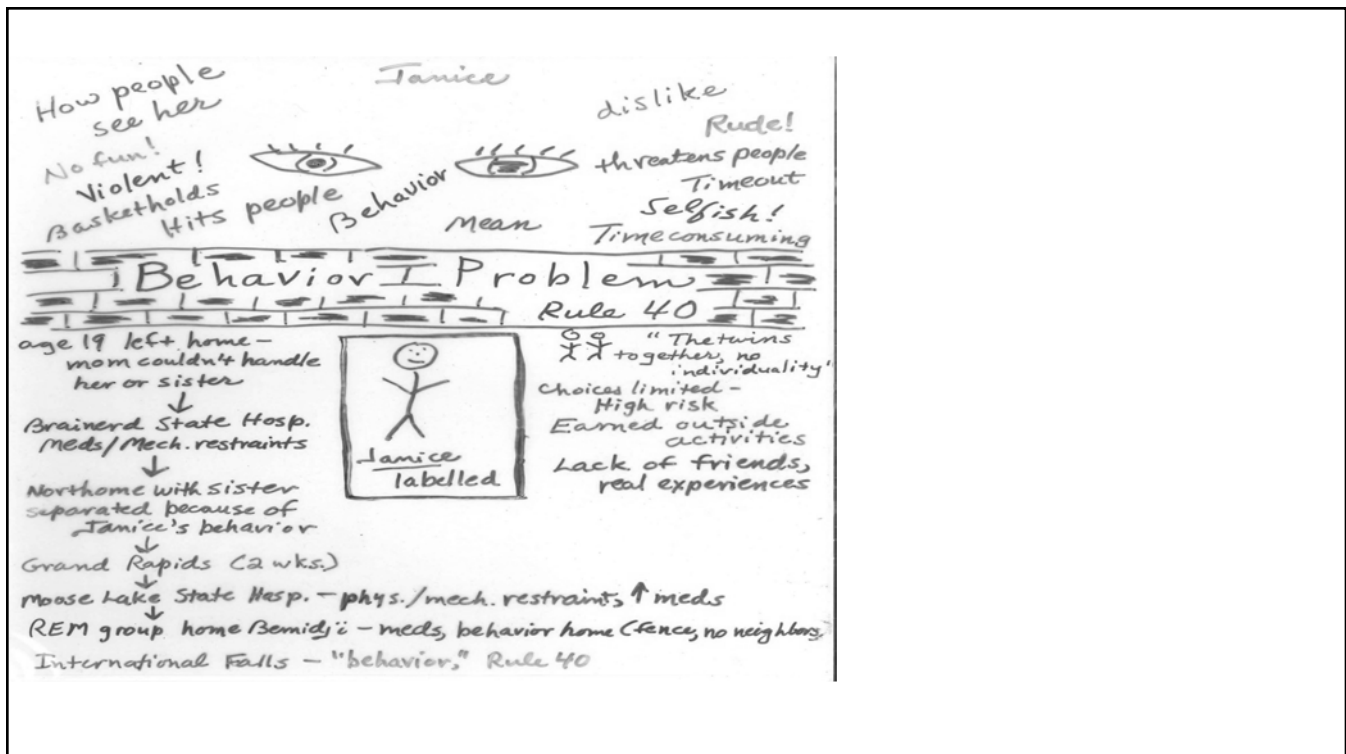 Janice
How people
see her
No fun!
Violent!
Basketholds
Hits people
Behavior
Mean
dislike
Rude!
threatens people
Timeout
Selfish!
Timeconsuming
Behavior Problem
Rule 40
age 19 left home -
mom couldn't handle
her or sister
↓
Brainerd State Hosp.
meds/Mech. restraints
↓
Northome with sister
separated because of
Janice's behavior
↓
Grand Rapids (2 wks.)
↓
Moose Lake State Hosp. - phys./mech. restraint, ↑ meds
↓
REM group home Bemidji - meds, behavior home (fence, no neighbors,
International Falls - "behavior," Rule 40
Janice
labelled
"The twins
together, no
individuality"
Choices limited -
High risk
Earned outside
activities
Lack of friends,
real experiences